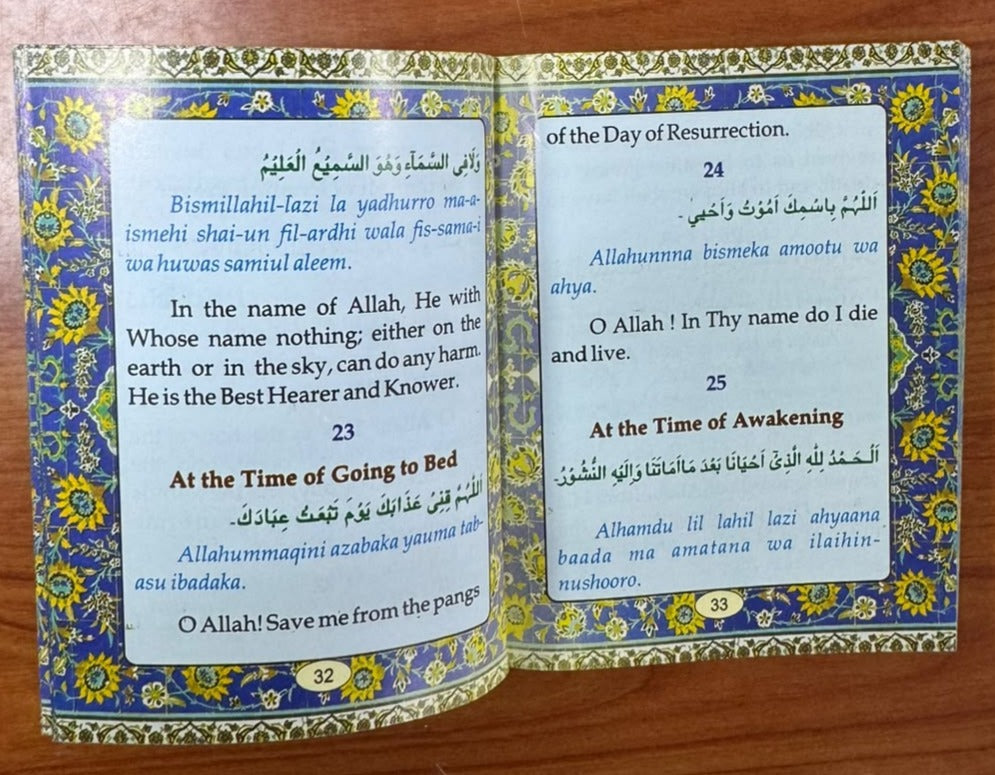 وَلَافِى السَّمَآءِ وَهُوَ السَّمِيْعُ الْعَلِيْمُ
Bismillahil-lazi la yadhurro ma-a-
ismehi shai-un fil-ardhi wala fis-sama-i
wa huwas samiul aleem.
In the name of Allah, He with
Whose name nothing; either on the
earth or in the sky, can do any harm.
He is the Best Hearer and Knower.
23
At the Time of Going to Bed
اَللّٰهُمَّ قِنِىْ عَذَابَكَ يَوْمَ تَبْعَثُ عِبَادَكَ-
Allahummaqini azabaka yauma tab-
asu ibadaka.
O Allah! Save me from the pangs
32
of the Day of Resurrection.
24
اَللّٰهُمَّ بِاسْمِكَ اَمُوْتُ وَاَحْيٰي -
Allahunnna bismeka amootu wa
ahya.
O Allah ! In Thy name do I die
and live.
25
At the Time of Awakening
اَلْحَمْدُ لِلّٰهِ الَّذِىْٓ اَحْيَانَا بَعْدَ مَااَمَاتَنَا وَاِلَيْهِ النُّشُوْرُ-
Alhamdu lil lahil lazi ahyaana
baada ma amatana wa ilaihin-
nushooro.
33